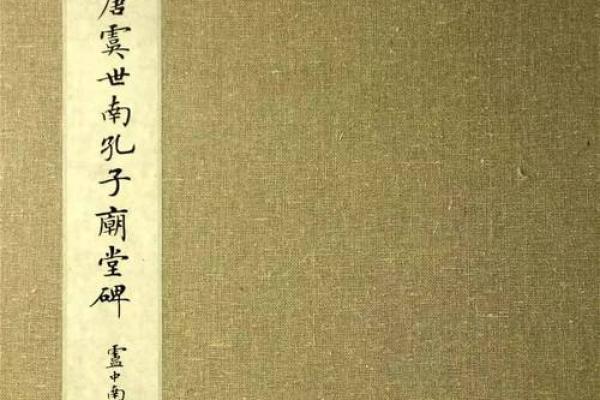 唐虞世南孔子廟堂碑
盧中南